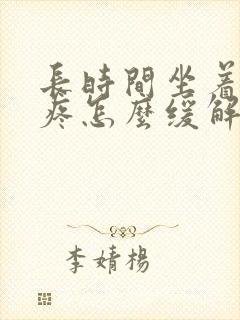 長時間坐着
疼怎麼緩解
李婧楊